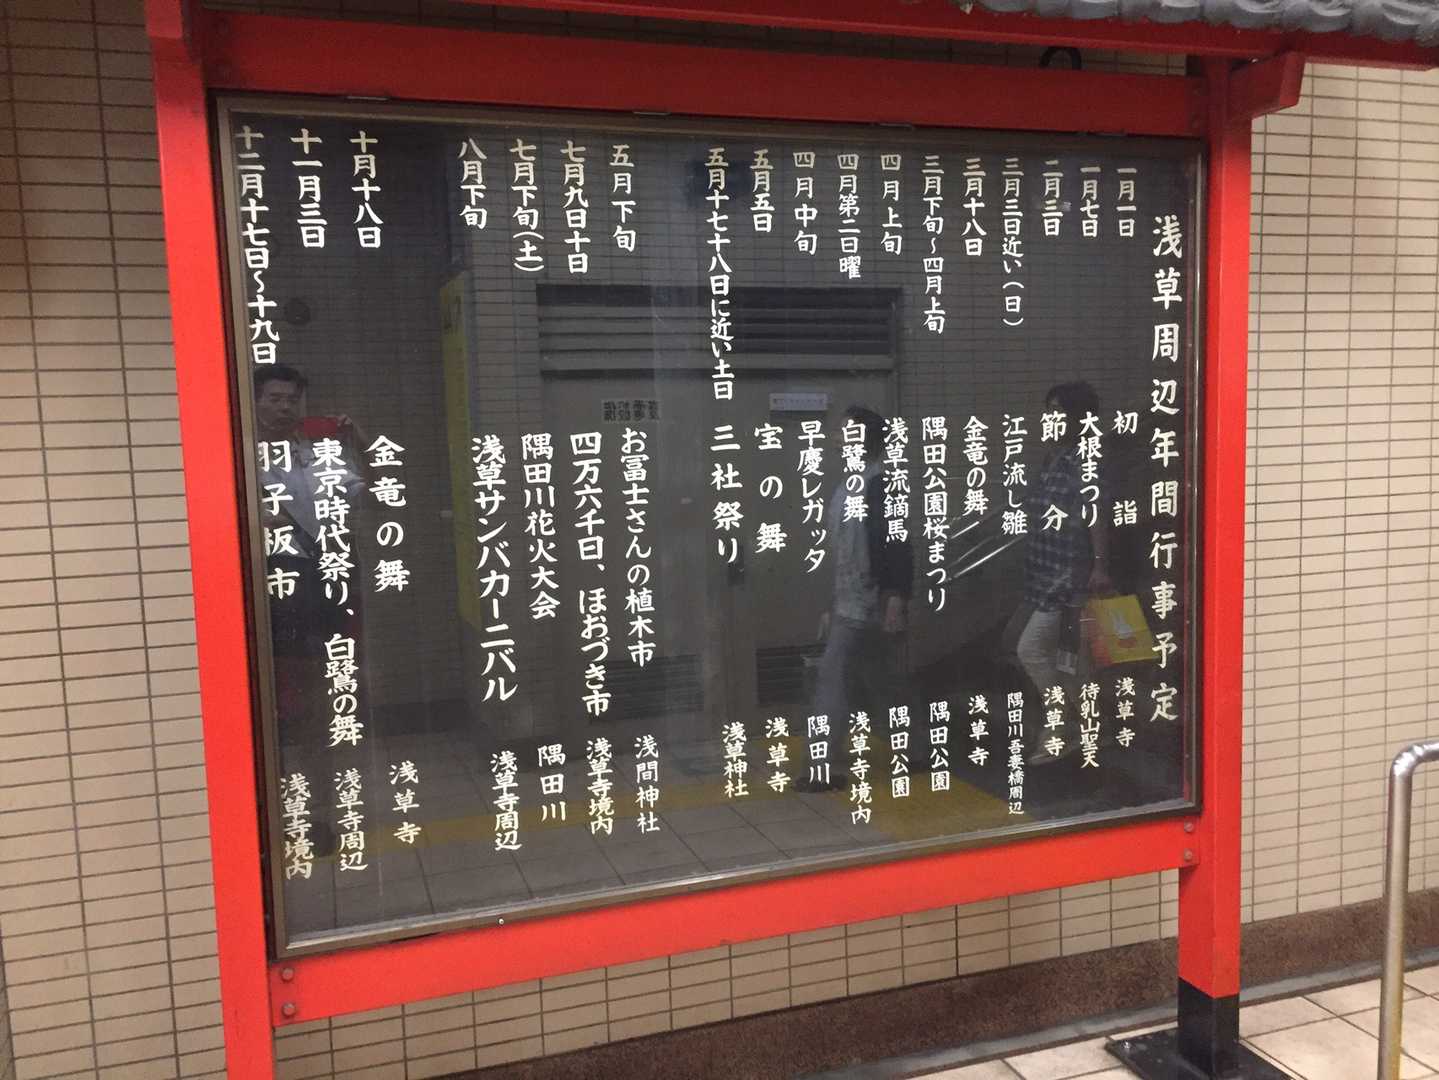 浅草周辺年間行事予定
一月一日 初詣 浅草寺
一月七日 大根まつり 待乳山聖天
二月三日 節分 浅草寺
三月三日近い(日) 江戸流し雛 隅田川吾妻橋周辺
三月十八日 金竜の舞 浅草寺
三月下旬〜四月上旬 隅田公園桜まつり 隅田公園
四月上旬 浅草流鏑馬 隅田公園
四月第二日曜 白鷺の舞 浅草寺境内
四月中旬 早慶レガッタ 隅田川
五月五日 宝の舞 浅草寺
五月十七十八日に近い土日 三社祭り 浅草神社
五月下旬 お冨士さんの植木市 浅間神社
七月九日十日 四万六千日、ほおづき市 浅草寺境内
七月下旬(土) 隅田川花火大会 隅田川
八月下旬 浅草サンバカーニバル 浅草寺周辺
十月十八日 金竜の舞 浅草寺
十一月三日 東京時代祭り、白鷺の舞 浅草寺周辺
十二月十七日〜十九日 羽子板市 浅草寺境内